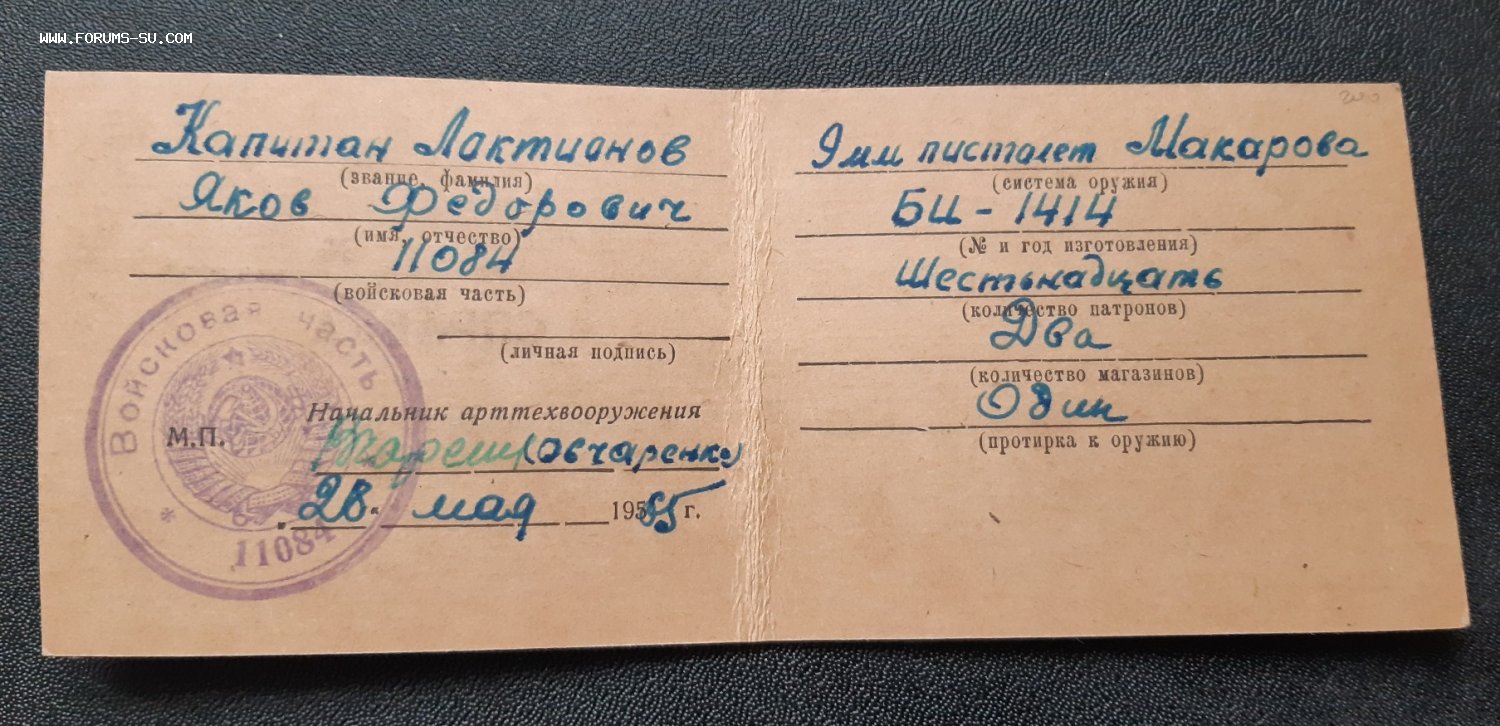 WWW.FORUMS-SU.COM
Капитан Лактионов
(звание, фамилия)
Яков Федорович
(имя, отчество)
11084
(войсковая часть)
(личная подпись)
Начальник арттехвооружения
М.П.
(Овчаренко)
"28" мая 1955 г.
Войсковая часть
* 11084
9мм пистолет Макарова
(система оружия)
БЦ - 1414
(№ и год изготовления)
Шестьнадцать
(количество патронов)
Два
(количество магазинов)
Один
(протирка к оружию)
200